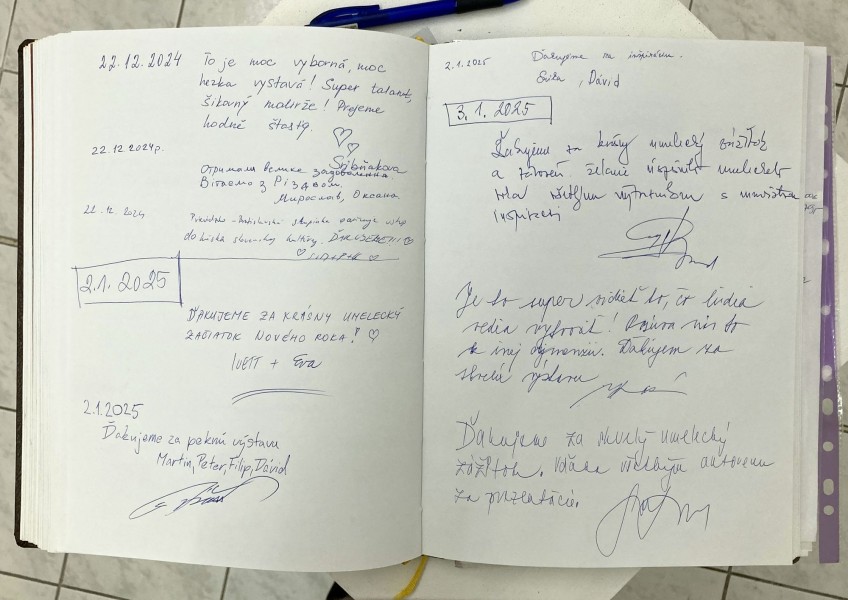 22.12.2024
To je moc vyborná, moc
hezka vystavá! Super talant,
šikovný malirže! Prejeme
hodně štastia.
22.12.2024 р.
Отримали велике задоволення
Вітаємо з Різдвом.
Мирослав, Оксана.
22.12.2024
skupinka
do slovenskej kultúry. ĎAKUJEME!!!
2.1.2025
ĎAKUJEME ZA KRÁSNY UMELECKÝ
ZAČIATOK NOVÉHO ROKA!
IVETT + Eva
2.1.2025
Ďakujeme za peknú výstavu
Martin, Peter, Filip, Dávid
2.1.2025
Ďakujeme za inšpiráciu.
Dávid
3.1.2025
Ďakujeme za krásny umelecký zážitok
a zároveň želanie
všetkým výtvarníkom s
inspirácií
Je to super vidieť to, čo ľudia
vedia vytvoriť! nás to
k inej dimenzii. Ďakujem za
skvelú výstavu
Ďakujeme za skvelý umelecký
zážitok. Vďaka všetkým autorom
za prezentácie.